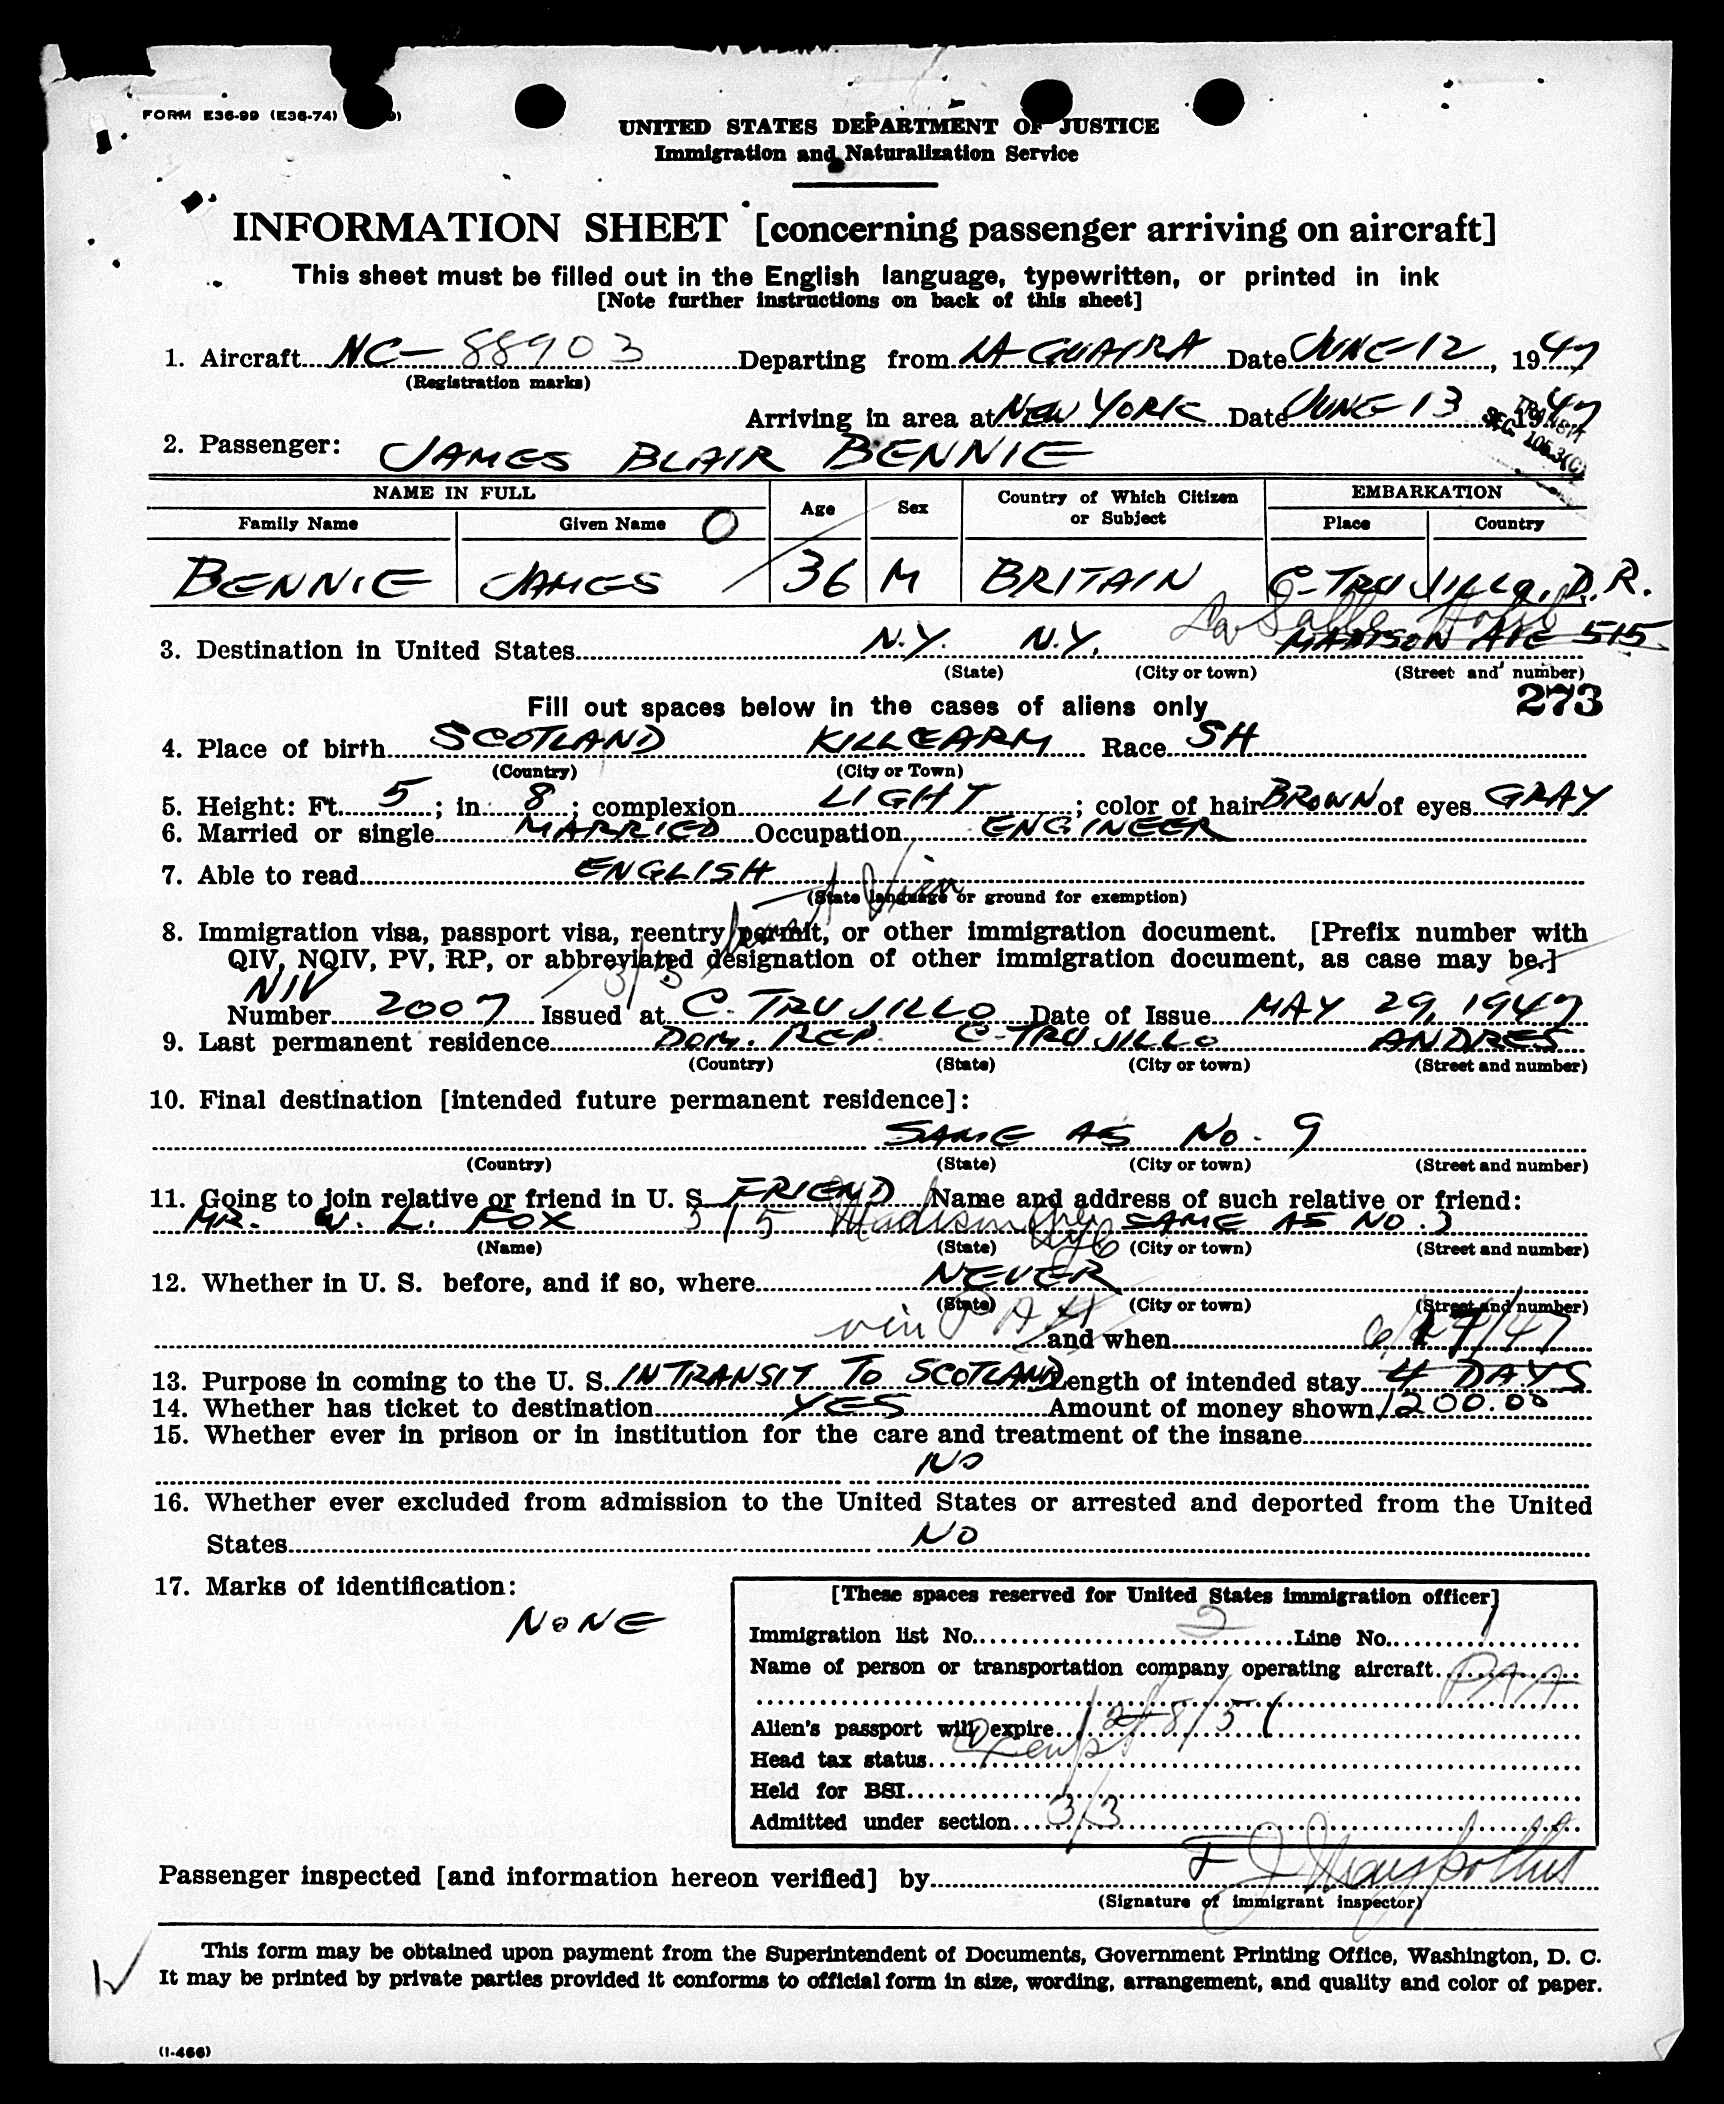 FORM E36-99 (E36-74)
UNITED STATES DEPARTMENT OF JUSTICE
Immigration and Naturalization Service
INFORMATION SHEET [concerning passenger arriving on aircraft]
This sheet must be filled out in the English language, typewritten, or printed in ink
[Note further instructions on back of this sheet]
1. Aircraft NC-88903 Departing from LA GUAIRA Date JUNE 12, 1947
(Registration marks)
Arriving in area at NEW YORK Date JUNE 13 1947
TRANSIT
SEC. 105.3(C)
2. Passenger: JAMES BLAIR BENNIE
NAME IN FULL Age Sex Country of Which Citizen or Subject EMBARKATION
Family Name Given Name O Place Country
BENNIE JAMES 36 M BRITAIN C-TRUJILLO, D.R.
La Salle Hotel
3. Destination in United States N.Y. N.Y. MADISON AVE 515
(State) (City or town) (Street and number)
Fill out spaces below in the cases of aliens only 273
4. Place of birth SCOTLAND KILLEARM Race SH
(Country) (City or Town)
5. Height: Ft. 5; in. 8; complexion LIGHT; color of hair BROWN of eyes GRAY
6. Married or single MARRIED Occupation ENGINEER
7. Able to read ENGLISH
(State language or ground for exemption)
8. Immigration visa, passport visa, reentry permit, or other immigration document. [Prefix number with
QIV, NQIV, PV, RP, or abbreviated designation of other immigration document, as case may be.]
NIV 3/3
Number 2007 Issued at C. TRUJILLO Date of Issue MAY 29, 1947
9. Last permanent residence DOM. REP. C-TRUJILLO ANDRES
(Country) (State) (City or town) (Street and number)
10. Final destination [intended future permanent residence]:
SAME AS No. 9
(Country) (State) (City or town) (Street and number)
11. Going to join relative or friend in U. S. FRIEND Name and address of such relative or friend:
MR. W. L. FOX 515 Madison Ave NYC SAME AS NO. 3
(Name) (State) (City or town) (Street and number)
12. Whether in U. S. before, and if so, where NEVER
(State) (City or town) (Street and number)
via PAA and when 6/17/47
13. Purpose in coming to the U. S. IN TRANSIT TO SCOTLAND Length of intended stay 4 DAYS
14. Whether has ticket to destination YES Amount of money shown 1200.00
15. Whether ever in prison or in institution for the care and treatment of the insane
NO
16. Whether ever excluded from admission to the United States or arrested and deported from the United
States NO
17. Marks of identification:
NONE
[These spaces reserved for United States immigration officer]
Immigration list No. 2 Line No. 1
Name of person or transportation company operating aircraft PAA
Alien's passport will expire 12/8/51
Head tax status Exempt
Held for BSI
Admitted under section 3/3
Passenger inspected [and information hereon verified] by
(Signature of immigrant inspector)
This form may be obtained upon payment from the Superintendent of Documents, Government Printing Office, Washington, D. C.
It may be printed by private parties provided it conforms to official form in size, wording, arrangement, and quality and color of paper.
(I-466)